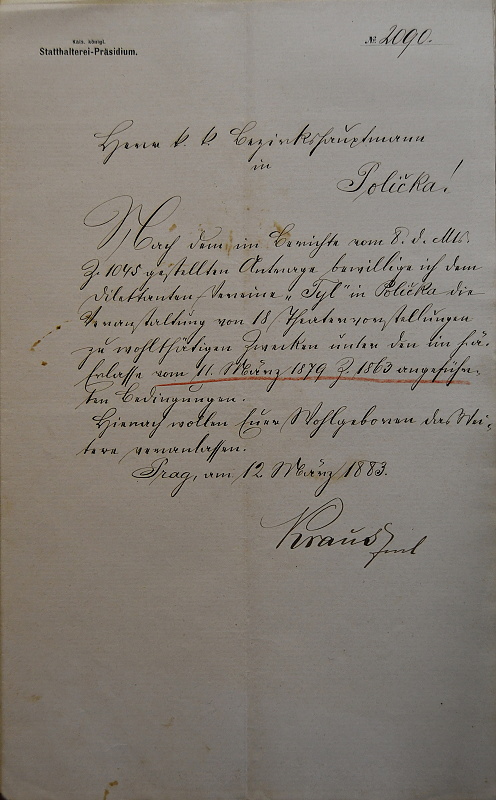 Kais. königl.
Statthalterei-Präsidium.
№ 2090.
Herrn k. k. Bezirkshauptmann
in
Polička!
Nach dem im Berichte vom 8. d. Mts.
Z. 1045 gestellten Antrage bewillige ich dem
Dilettanten-Vereine „Tyl" in Polička die
Veranstaltung von 18 Theatervorstellungen
zu wohlthätigen Zwecken unter den im h. ä.
Erlasse vom 11. März 1879 Z. 1863 angeführ-
ten Bedingungen.
Hienach wollen Euer Wohlgeboren das Wei-
tere veranlassen.
Prag, am 12. März 1883.
Kraus